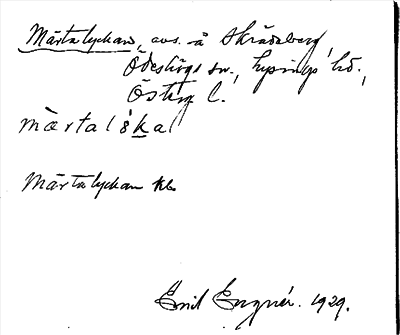 Märtalyckan, avs. å Skrädaberg,
Ödeshögs sn., Lysings hd.,
Östg l.
mærtal
Märtalyckan
Emil Engnér. 1929.